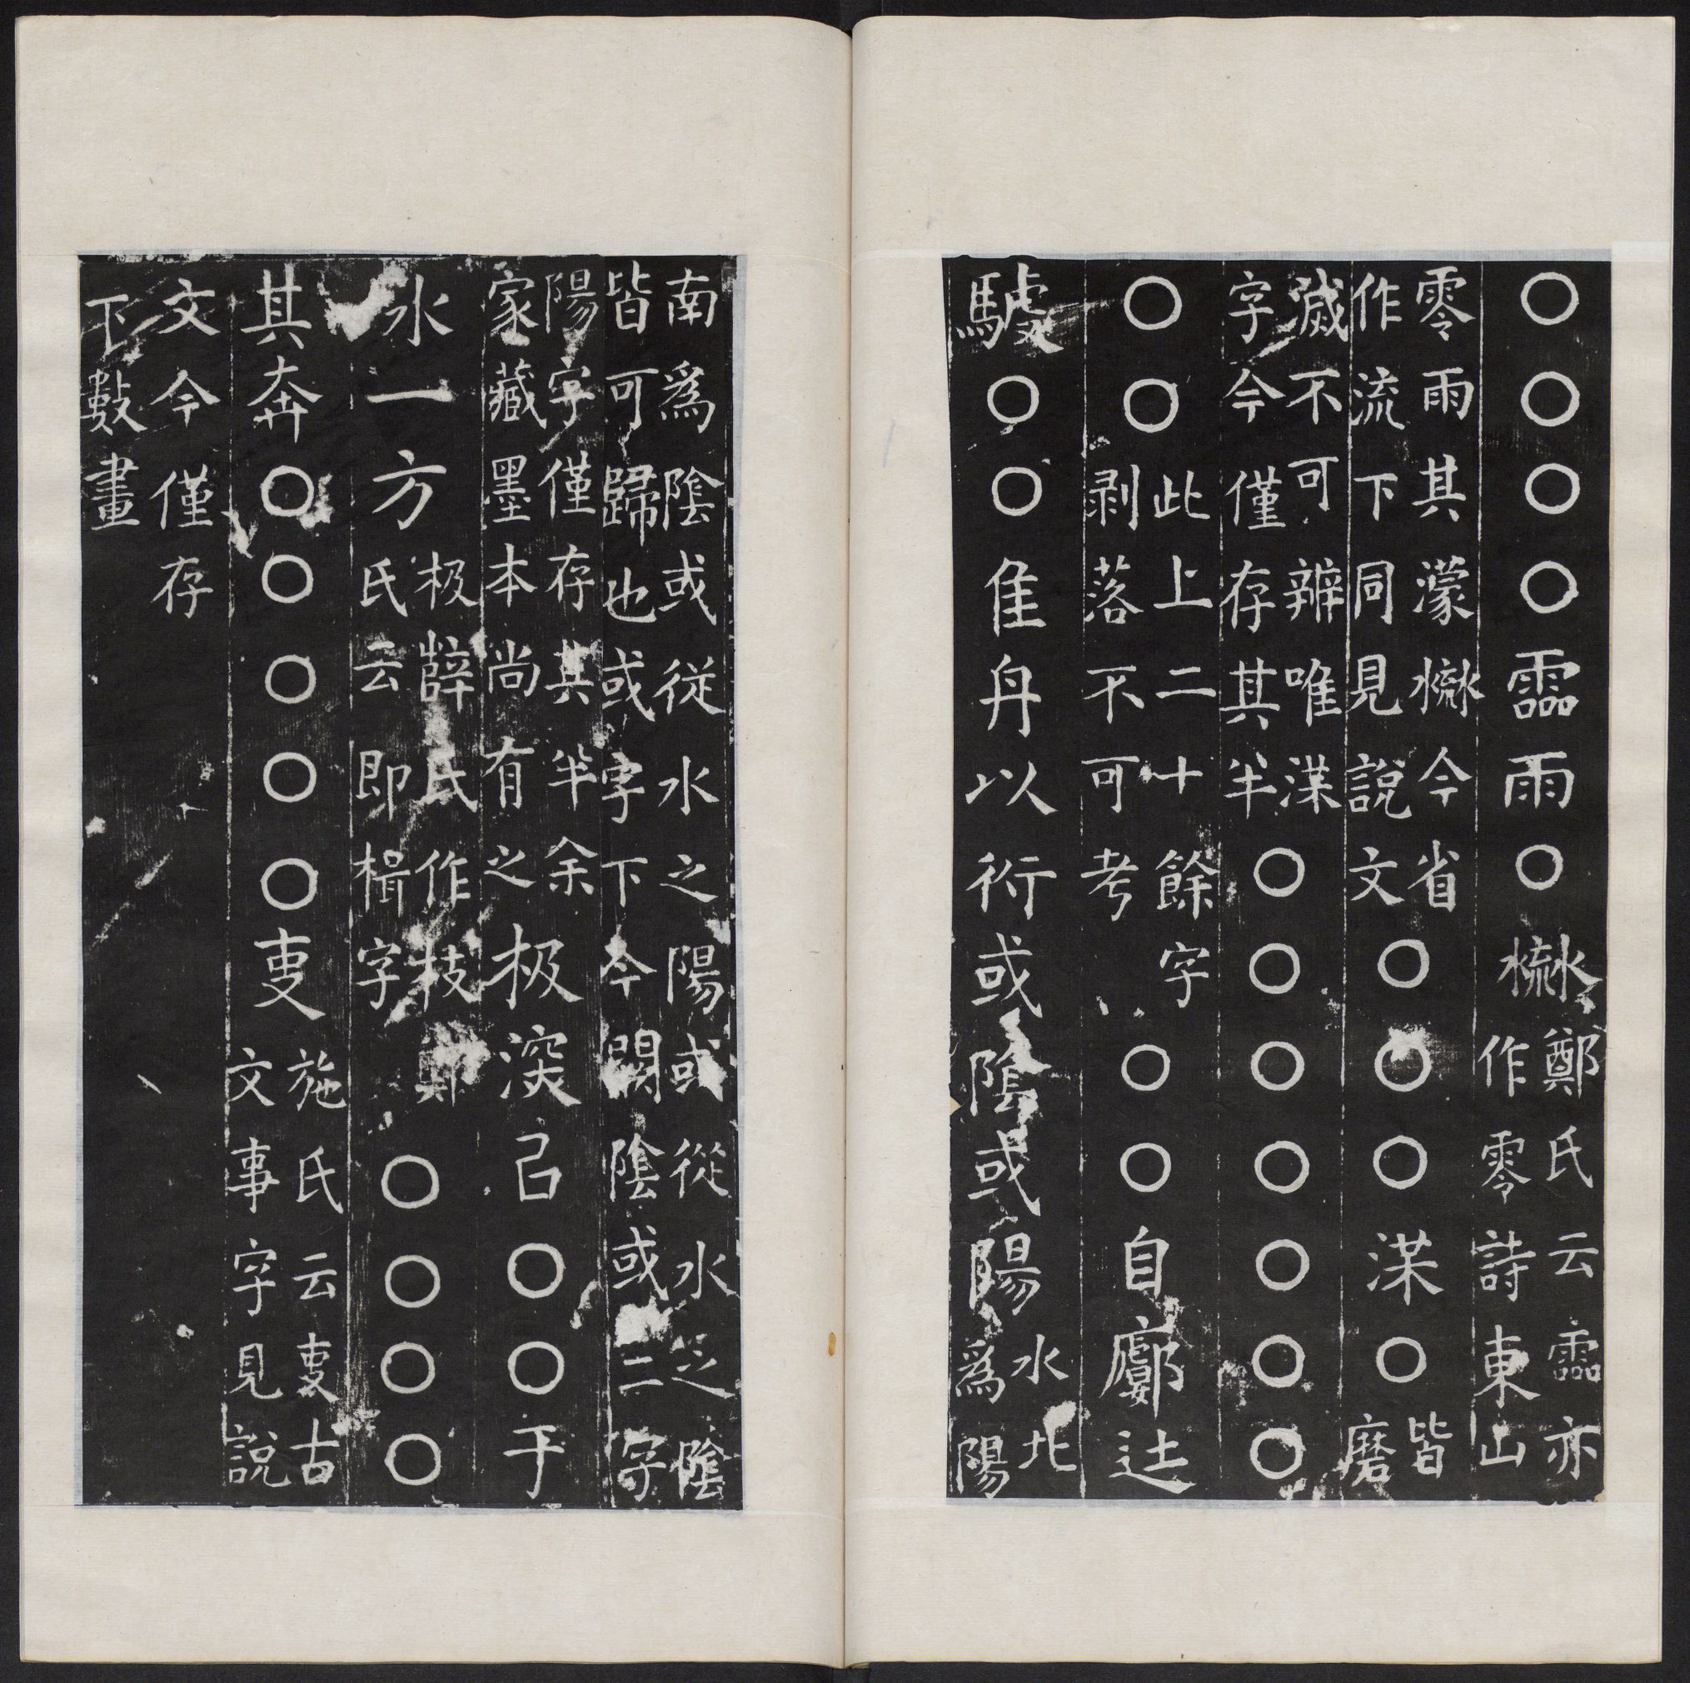 ○○○○霝雨○
鄭氏云霝亦
作零詩東山
零雨其濛今省
作流下同見說文
○○○渫○
皆
磨
滅不可辨唯渫
字今僅存其半
○○○○○○○
○○
此上二十餘字
剝落不可考
○○自鄜𨑒
○○隹舟以衍或陰或陽
水北
爲陽
南爲陰或從水之陽或從水之陰
皆可歸也或字下今闕陰或二字
陽字僅存其半余
家藏墨本尚有之
极深己○○于
水一方
极薛氏作枝鄭
氏云即楫字
○○○○
其奔○○○○○叓
施氏云叓古
文事字見說
文今僅存
下數畫